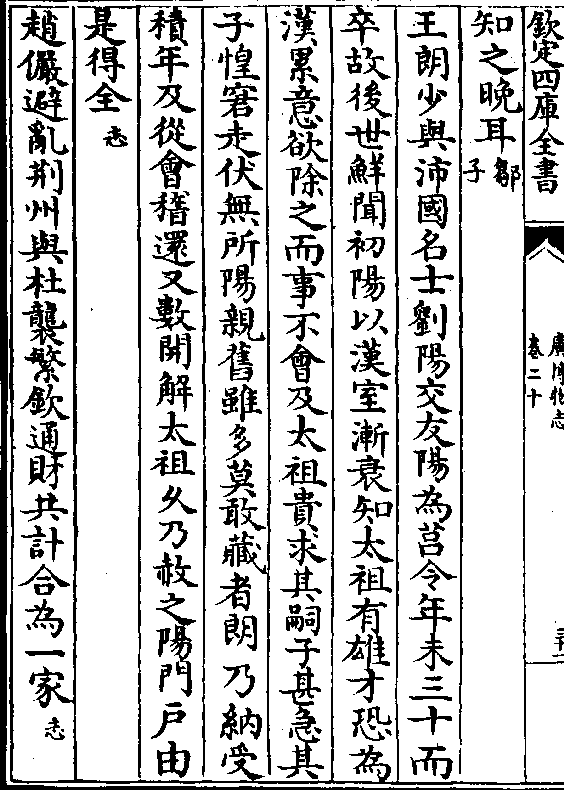 欽定四庫全書
廣博物志
卷二十
知之晚耳鄒子
王朗少與沛國名士劉陽交友陽為莒令年未三十而
卒故後世鮮聞初陽以漢室漸衰知太祖有雄才恐為
漢累意欲除之而事不會及太祖貴求其嗣子甚急其
子惶窘走伏無所陽親舊雖多莫敢藏者朗乃納受
積年及從會稽還又數開解太祖乆乃赦之陽門戶由
是得全志
趙儼避亂荆州與杜襲繁欽通財共計合為一家志